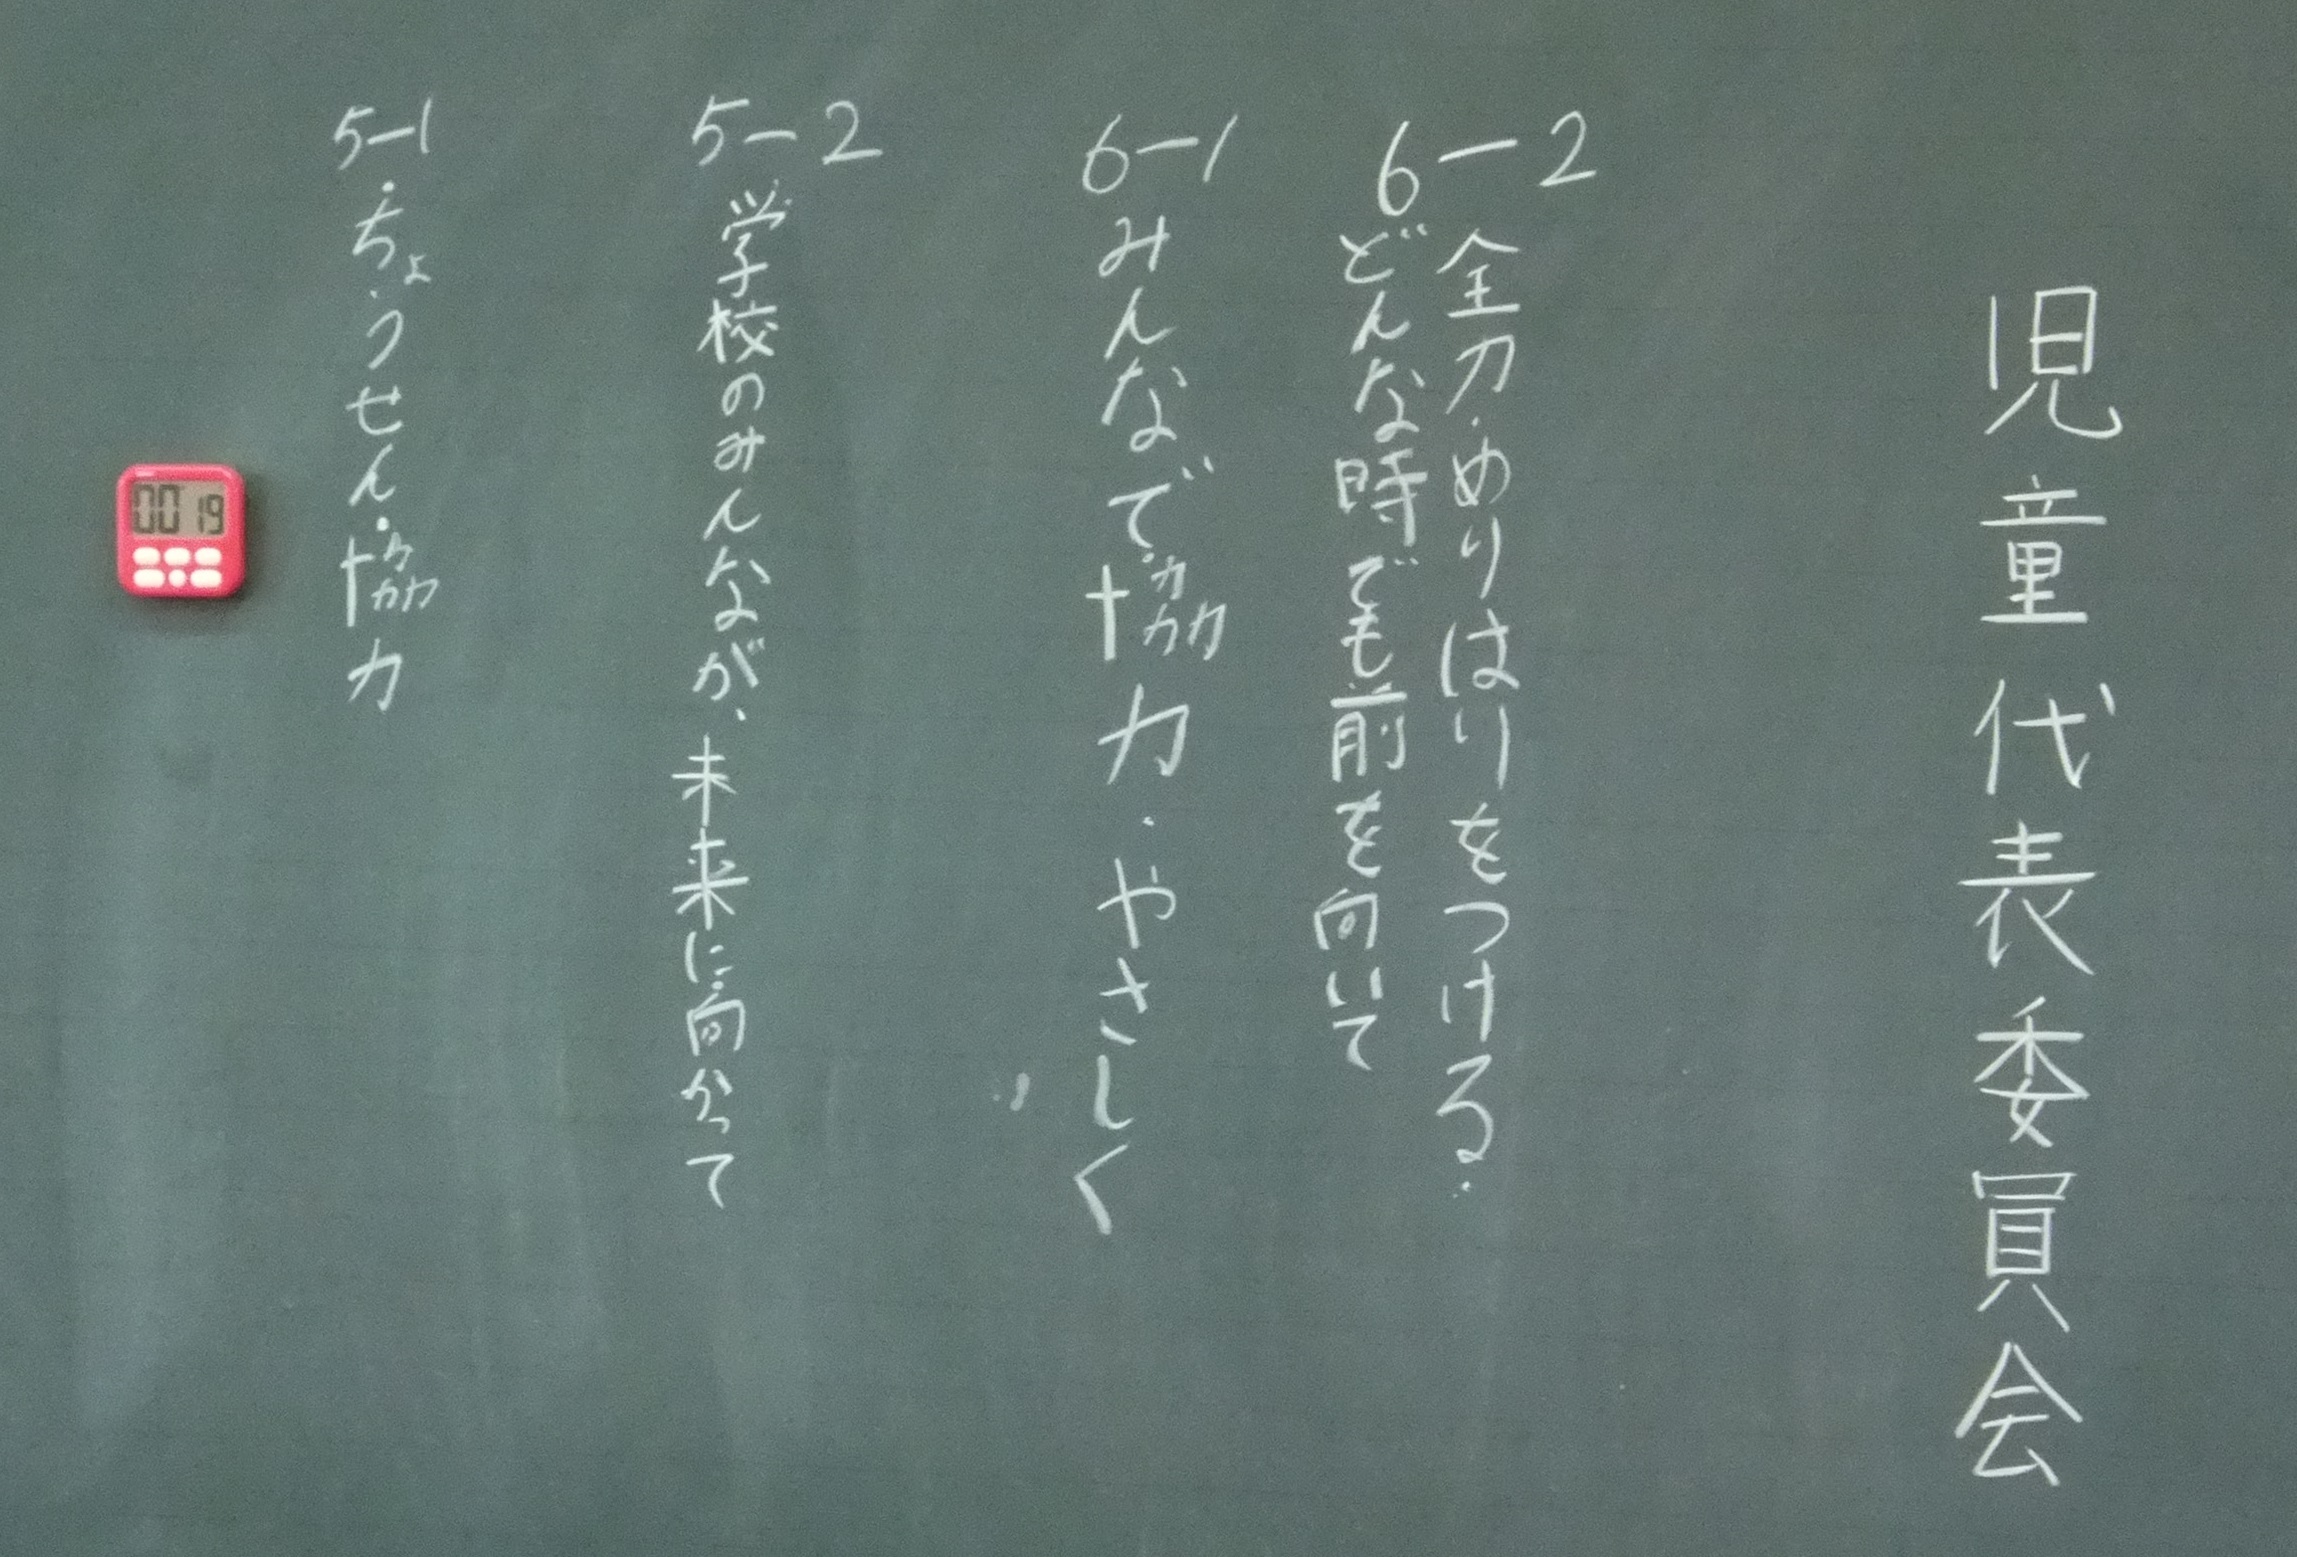 児童代表委員会
6-2
全力・めりはりをつける・
どんな時でも前を向いて
6-1
みんなで協力・やさしく
5-2
学校のみんなが、未来に向かって
5-1
・ちょうせん・協力
00 19